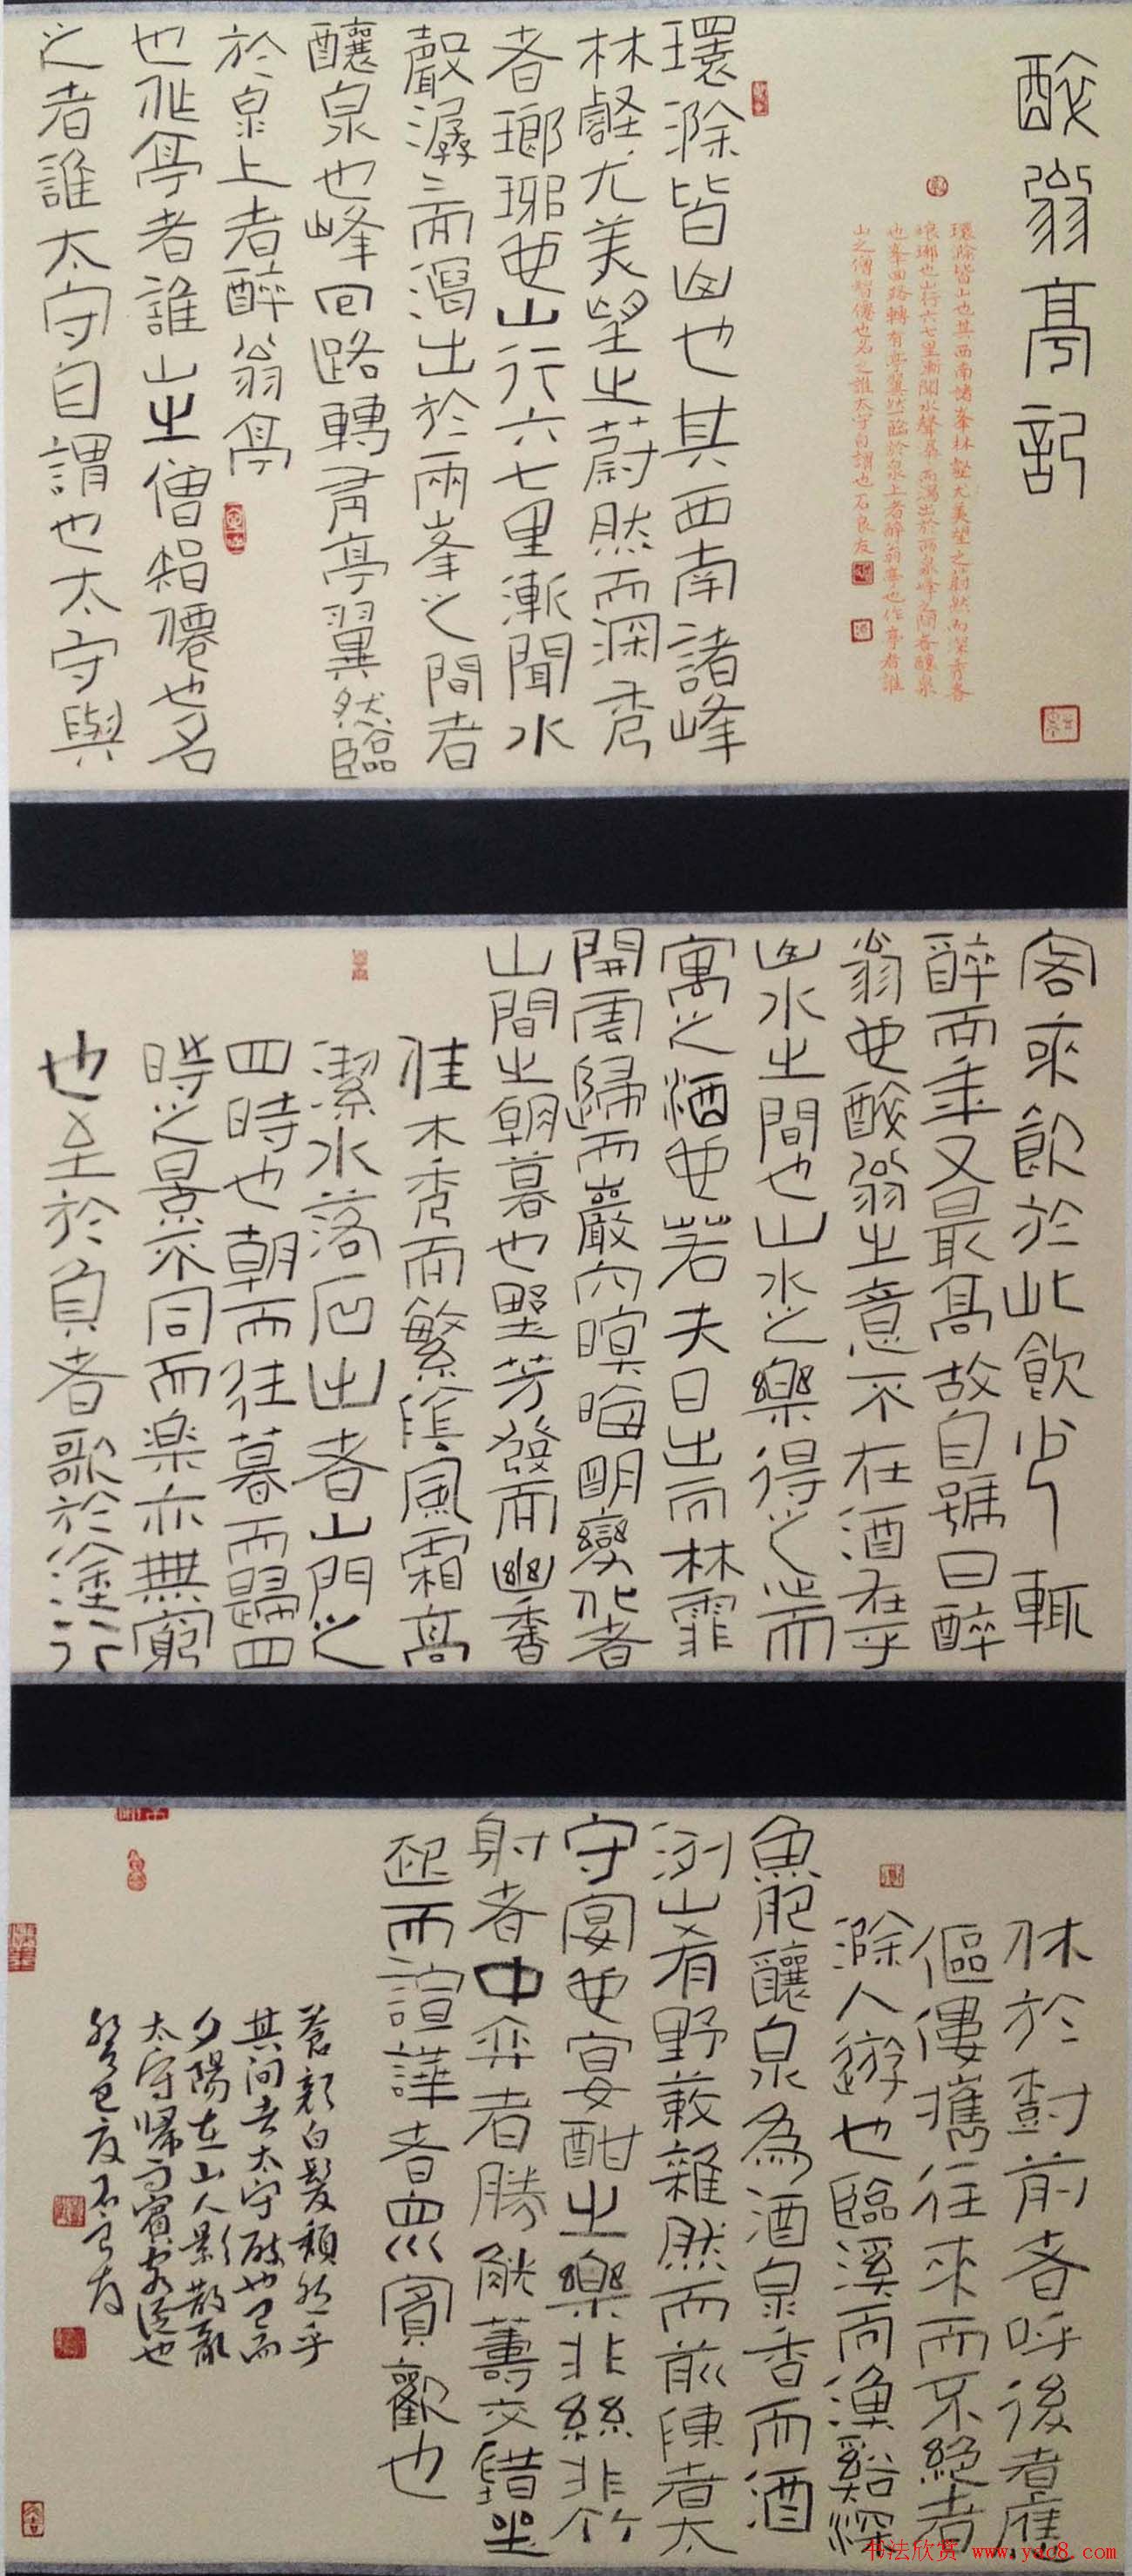 醉翁亭記
環滁皆山也其西南諸峯林壑尤美望之蔚然而深秀者
琅琊也山行六七里漸聞水聲潺而瀉出於兩泉峰之間者釀泉
也峯回路轉有亭翼然臨於泉上者醉翁亭也作亭者誰
山之僧智僊也名之誰太守自謂也石良友
環滁皆山也其西南諸峰
林壑尤美望之蔚然而深秀
者瑯琊也山行六七里漸聞水
聲潺二而瀉出於兩峯之間者
釀泉也峰回路轉有亭翼然臨
於泉上者醉翁亭
也作亭者誰山之僧智僊也名
之者誰太守自謂也太守與
客來飲於此飲少輒
醉而年又最高故自號曰醉
翁也醉翁之意不在酒在乎
山水之間也山水之樂得之心而
寓之酒也若夫日出而林霏
開雲歸而巖穴暝晦明變化者
山間之朝暮也野芳發而幽香
佳木秀而繁陰風霜高
潔水落石出者山間之
四時也朝而往暮而歸四
時之景不同而樂亦無窮
也至於負者歌於塗行
休於樹前者呼後者應
傴僂攜往來而不絕者
滁人遊也臨溪而漁谿深
魚肥釀泉為酒泉香而酒
洌山肴野蔌雜然而前陳者太
守宴也宴酣之樂非絲非竹
射者中弈者勝觥籌交錯坐
起而諠譁者眾賓歡也
蒼顏白髮頹然乎
其間者太守醉也已而
夕陽在山人影散亂
太守歸而賓客從也
癸巳夏石良友
书法欣赏 www.yac8.com